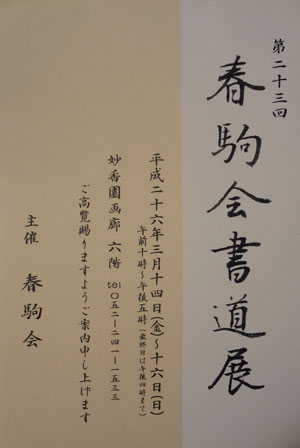 第二十三回
春駒会書道展
平成二十六年三月十四日(金)～十六日(日)
午前十時～午後五時(最終日は午後四時まで)
妙香園画廊 六階 tel 〇五二-二四一-一五三三
ご高覧賜りますようご案内申し上げます
主催 春駒会